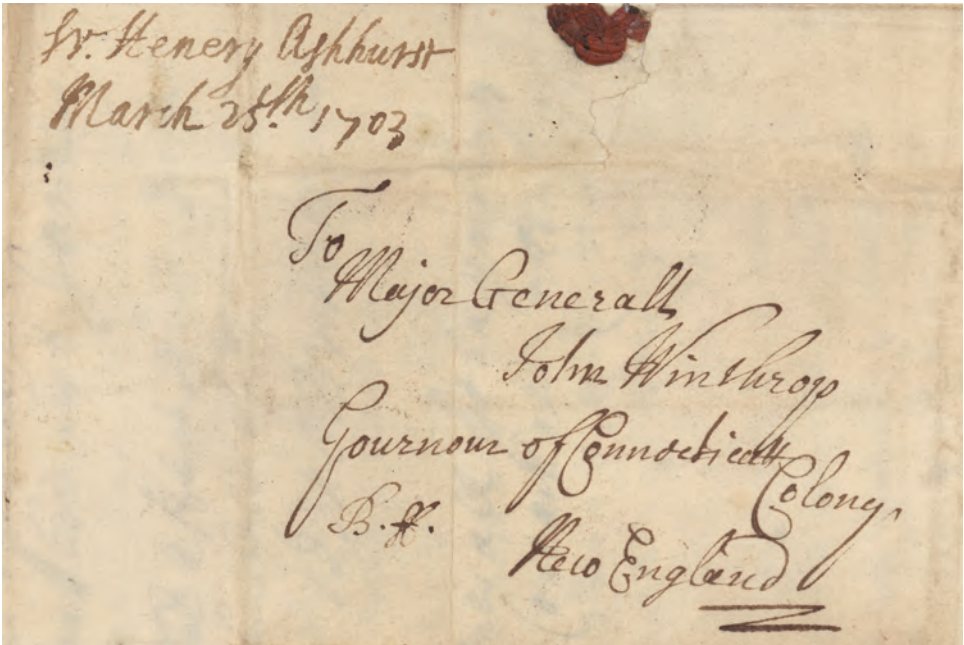 Sr. Henery Ashhurst
March 25th. 1703
To
Major Generall
John Winthrop
Gournour of Connecticutt
Colony,
B. H.
New England